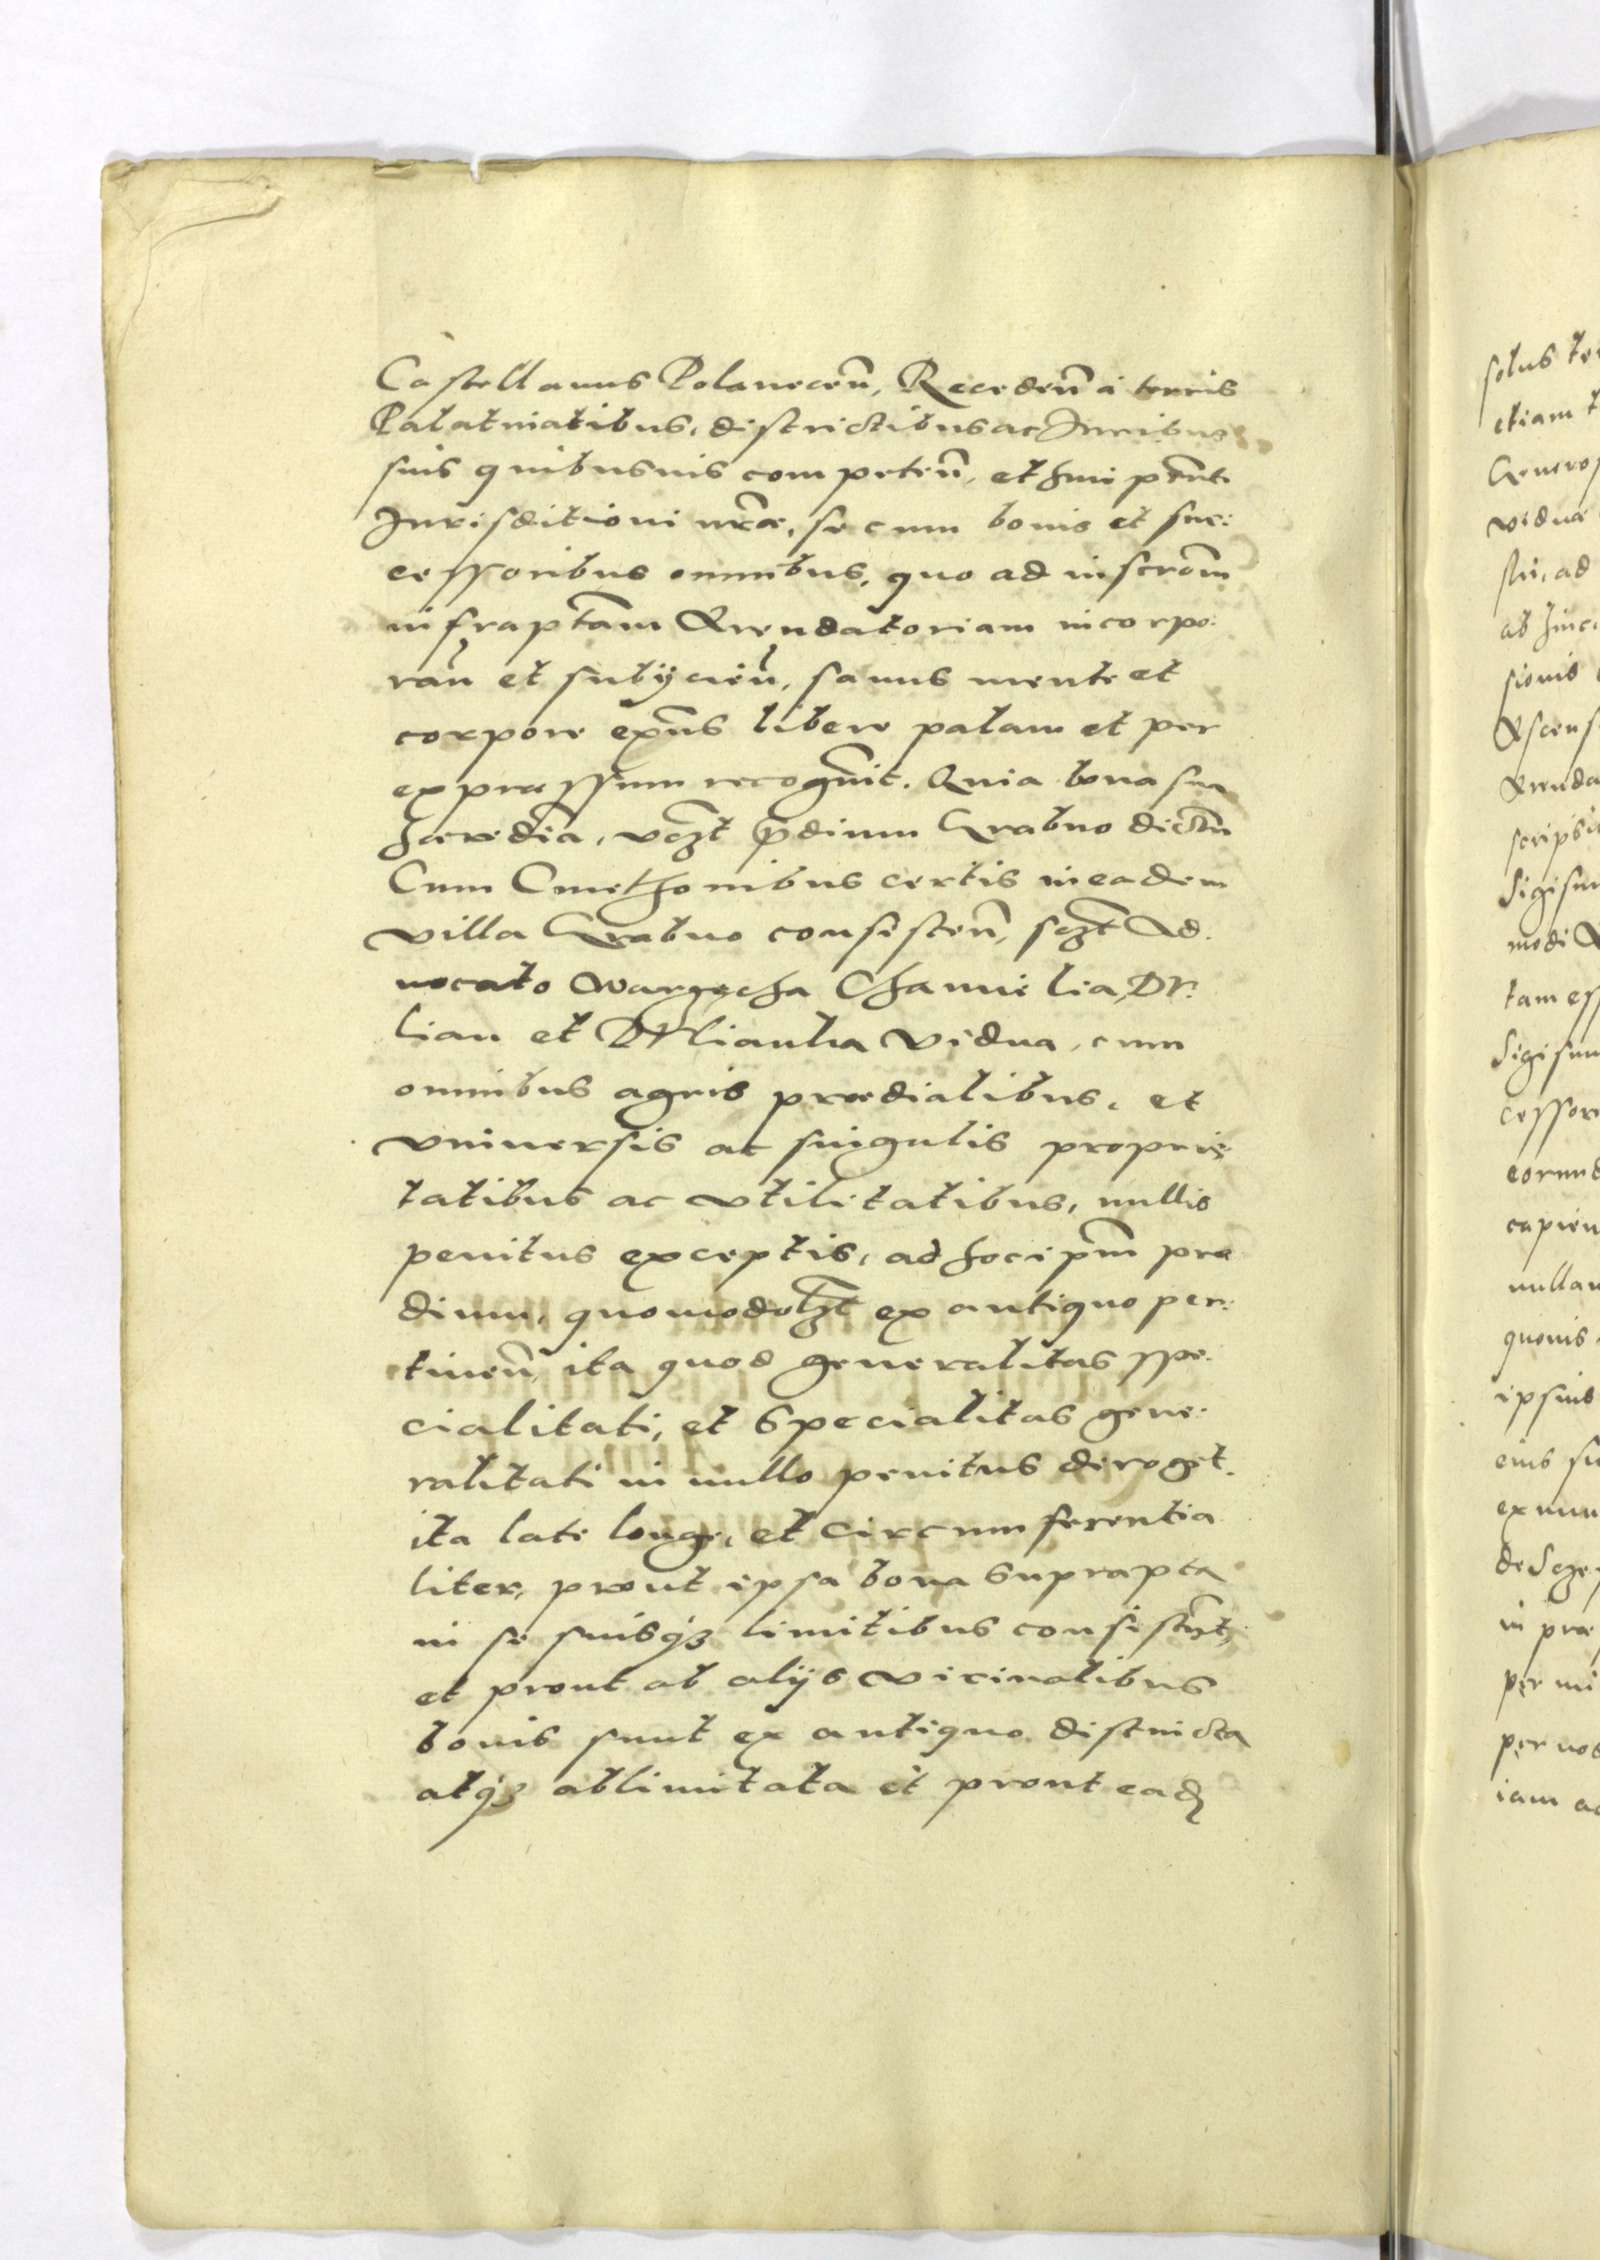 Castellanus Polanecen̄, Receden̄ à terris
Palatinatibus, districtibus ac Iuribus
suis quibusuis competen̄, et huic pn̄ti
Iurisditioni nr̄æ, se cum bonis et suc:
cessoribus omnibus, quo ad inscrōm
infraptam Arendatoriam incorpo:
ran̄ et subijcien̄, sanus mente et
corpore exn̄s libere palam et per
expræssum recognit. Quia bona sua
hæredia, vczt prædium Grabno dictū
Cum Cmethonibus certis in eadem
villa Grabno consisten̄, sczt Ad.
uocato
lian et vidua, cum
omnibus agris prædialibus, et
vniuersis ac singulis proprie
tatibus ac vtilitatibus, nullis
penitus exceptis, ad hoc ipm̄ præ
dium, quomodolzt ex antiquo per:
tinen̄, ita quod generalitas spe:
cialitati, et Specialitas gene:
ralitati in nullo penitus deroget.
ita late longe, et circumferentia
liter, prout ipsa bona Suprapta
in se suisqȝ limitibus consistūt,
et prout ab alijs vicinalibus
bonis sunt ex antiquo distincta
atqȝ ablimitata et prout eadē
solus te
etiam t
Generos
viduæ
ad
ab huic
sionis
Ascens
Arenda
scripsi
Sigism
modi A
tam ess
Sigism
cessor
eorund
capien
nullam
quouis
ipsius
eius su
ex nun
in præ
per
per nos
iam ac